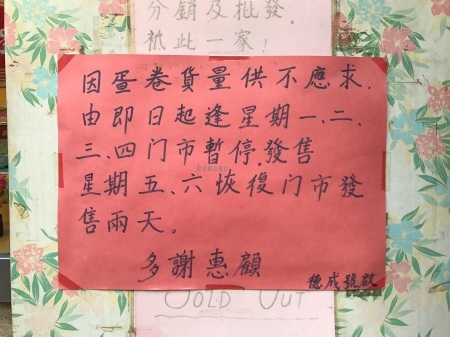 分銷及批發。
祇此一家！
因蛋卷貨量供不應求.
由即日起逢星期一、二、
三、四门市暫停.發售
星期五、六恢復门市發
售兩天。
多謝惠顧
德成號啟
SOLD OUT